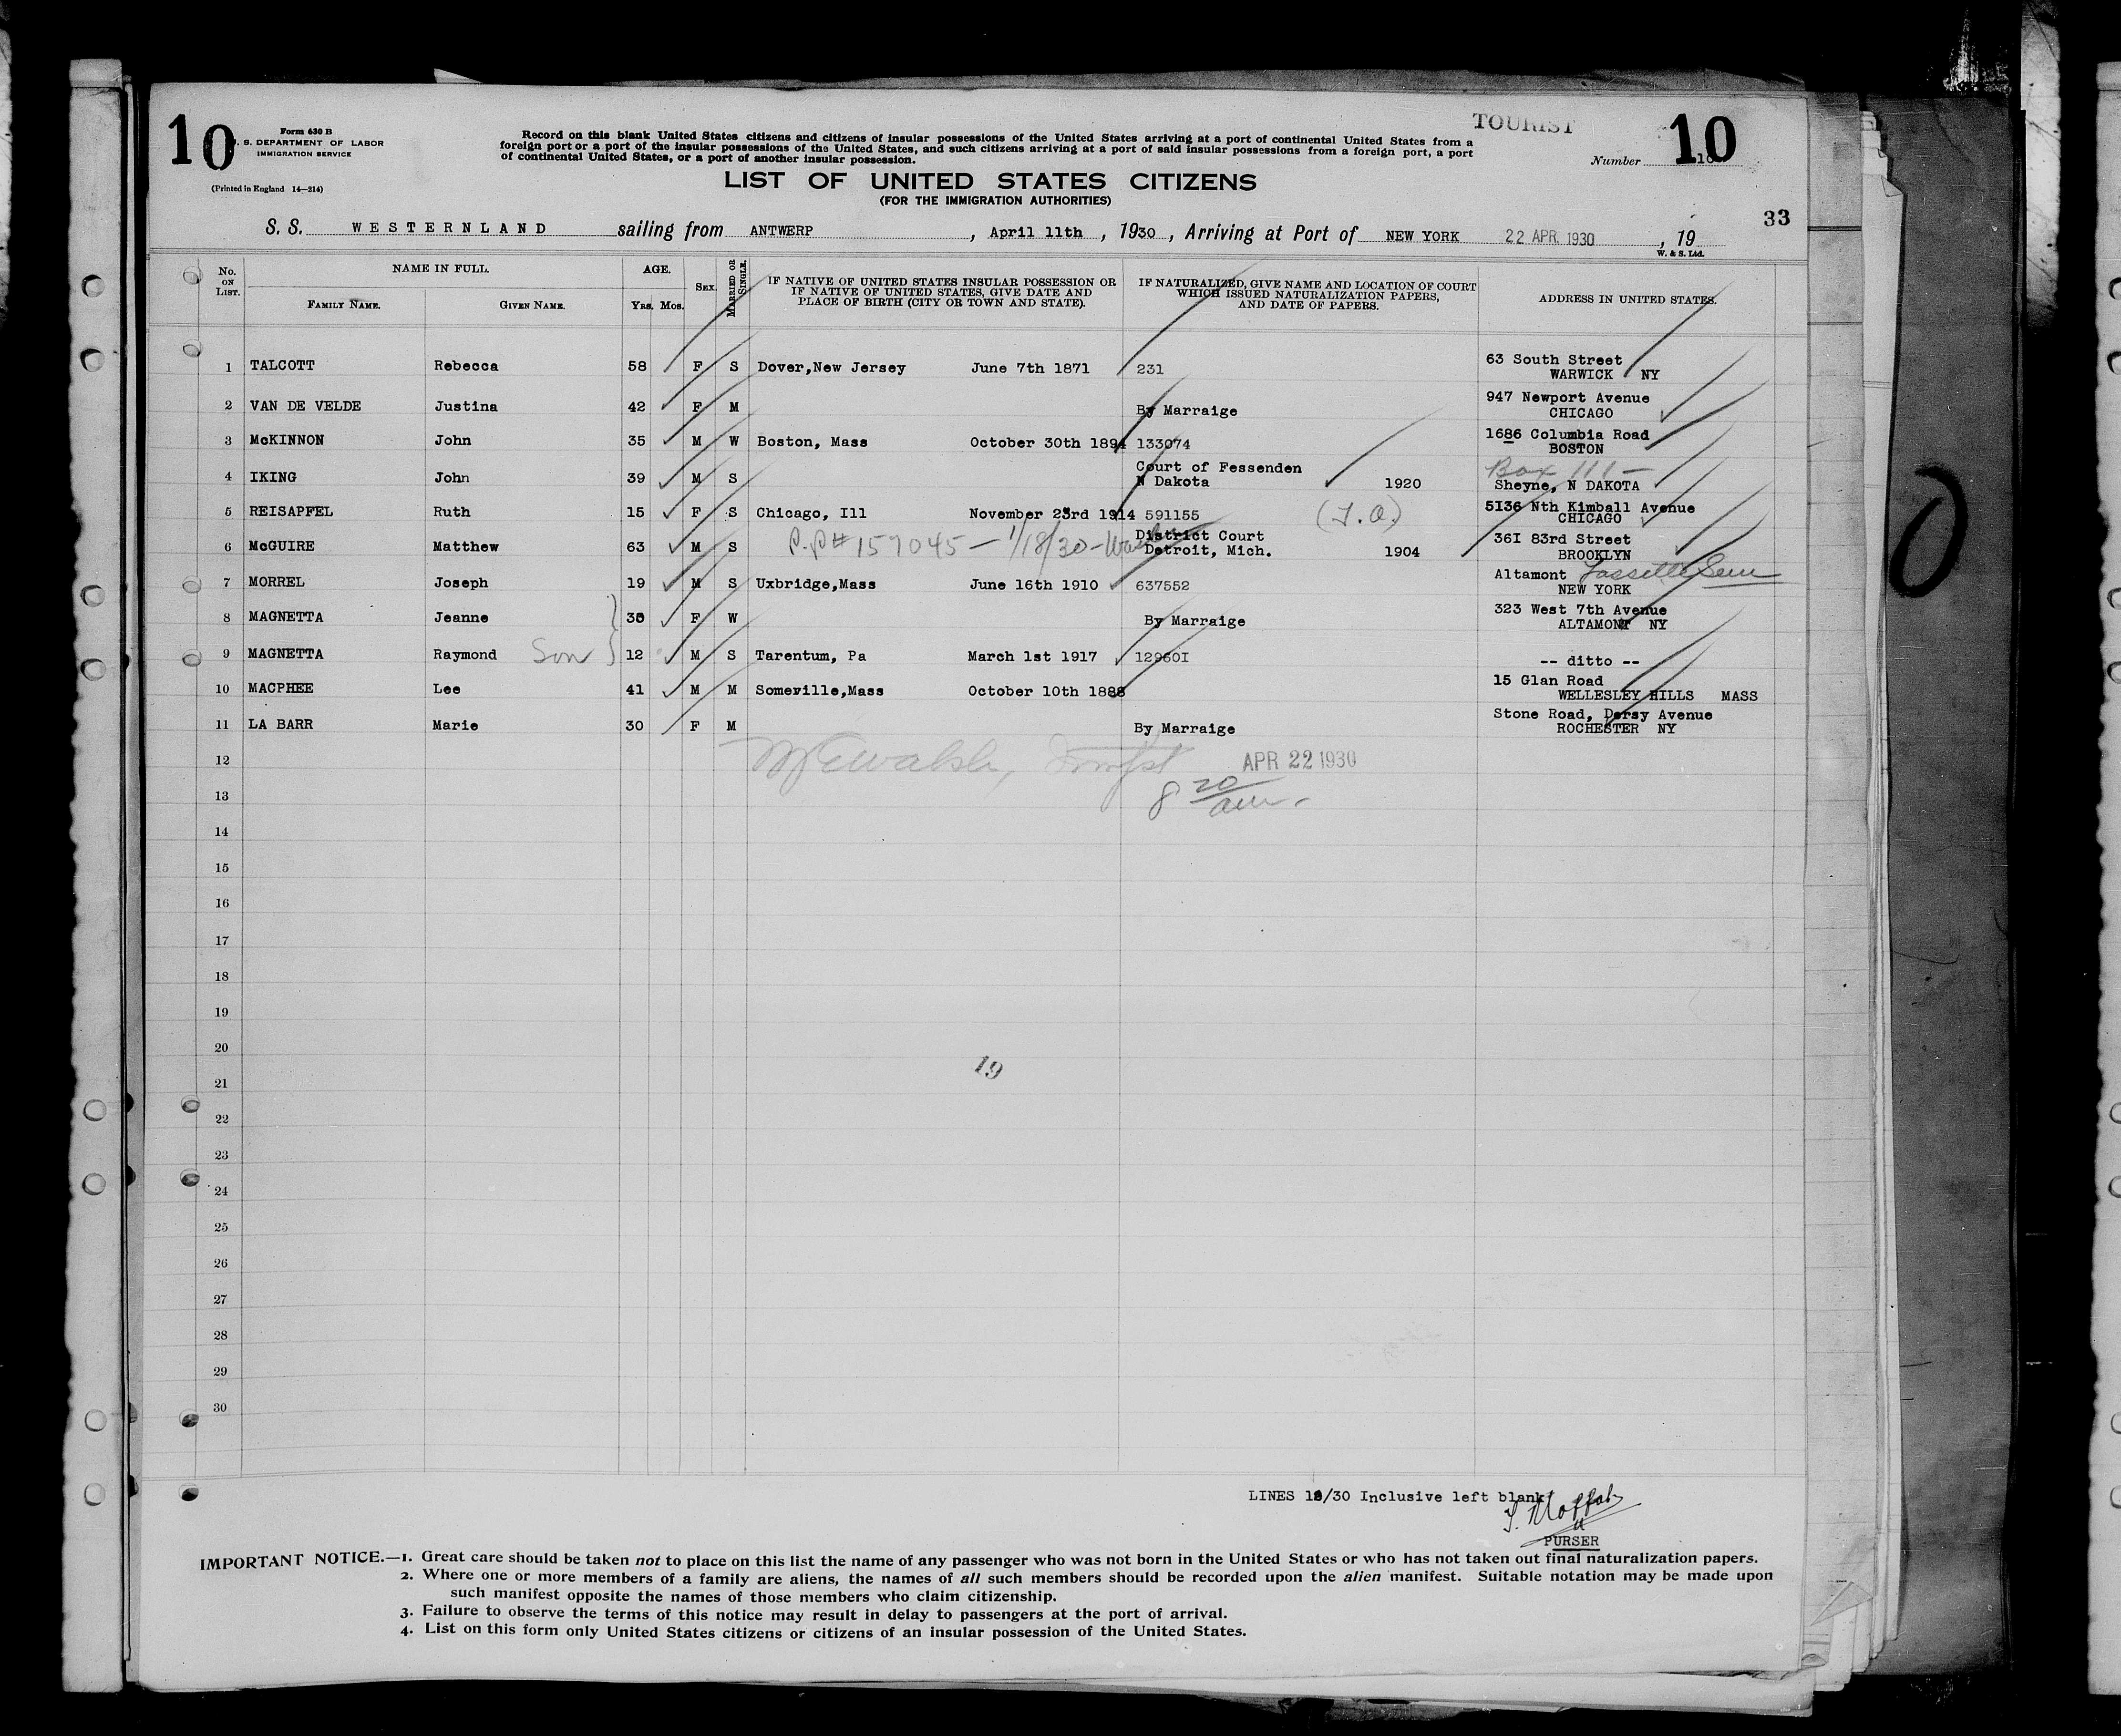 TOURIST
10 Form 630 B
U. S. DEPARTMENT OF LABOR
IMMIGRATION SERVICE
(Printed in England 14—214)
Record on this blank United States citizens and citizens of insular possessions of the United States arriving at a port of continental United States from a
foreign port or a port of the insular possessions of the United States, and such citizens arriving at a port of said insular possessions from a foreign port, a port
of continental United States, or a port of another insular possession.
Number 10
LIST OF UNITED STATES CITIZENS
(FOR THE IMMIGRATION AUTHORITIES)
33
S. S. WESTERNLAND sailing from ANTWERP, April 11th, 1930, Arriving at Port of NEW YORK 22 APR. 1930, 19
W. & S. Ltd.
No. ON LIST. NAME IN FULL. FAMILY NAME. GIVEN NAME. AGE. Yrs. Mos. SEX. MARRIED OR SINGLE. IF NATIVE OF UNITED STATES INSULAR POSSESSION OR IF NATIVE OF UNITED STATES, GIVE DATE AND PLACE OF BIRTH (CITY OR TOWN AND STATE). IF NATURALIZED, GIVE NAME AND LOCATION OF COURT WHICH ISSUED NATURALIZATION PAPERS, AND DATE OF PAPERS. ADDRESS IN UNITED STATES.
1 TALCOTT Rebecca 58 F S Dover,New Jersey June 7th 1871 231 63 South Street
WARWICK NY
2 VAN DE VELDE Justina 42 F M By Marraige 947 Newport Avenue
CHICAGO
3 McKINNON John 35 M W Boston, Mass October 30th 1894 133074 1686 Columbia Road
BOSTON
4 IKING John 39 M S Court of Fessenden
N Dakota 1920 Box 111 —
Sheyne, N DAKOTA
5 REISAPFEL Ruth 15 F S Chicago, Ill November 23rd 1914 591155 (T.O.) 5136 Nth Kimball Avenue
CHICAGO
6 McGUIRE Matthew 63 M S P.P# 157045 — 1/18/30 — District Court
Detroit, Mich. 1904 36I 83rd Street
BROOKLYN
7 MORREL Joseph 19 M S Uxbridge,Mass June 16th 1910 637552 Altamont
NEW YORK
8 MAGNETTA Jeanne 38 F W By Marraige 323 West 7th Avenue
ALTAMONT NY
9 MAGNETTA Raymond Son 12 M S Tarentum, Pa March 1st 1917 12960I -- ditto --
10 MACPHEE Lee 41 M M Someville,Mass October 10th 1888 15 Glan Road
WELLESLEY HILLS MASS
11 LA BARR Marie 30 F M By Marraige Stone Road, Dersy Avenue
ROCHESTER NY
12 APR 22 1930
13 8 20/am.
14
15
16
17
18
19
20
19
21
22
23
24
25
26
27
28
29
30
LINES 12/30 Inclusive left blank
PURSER
IMPORTANT NOTICE.—1. Great care should be taken not to place on this list the name of any passenger who was not born in the United States or who has not taken out final naturalization papers.
2. Where one or more members of a family are aliens, the names of all such members should be recorded upon the alien manifest. Suitable notation may be made upon
such manifest opposite the names of those members who claim citizenship.
3. Failure to observe the terms of this notice may result in delay to passengers at the port of arrival.
4. List on this form only United States citizens or citizens of an insular possession of the United States.